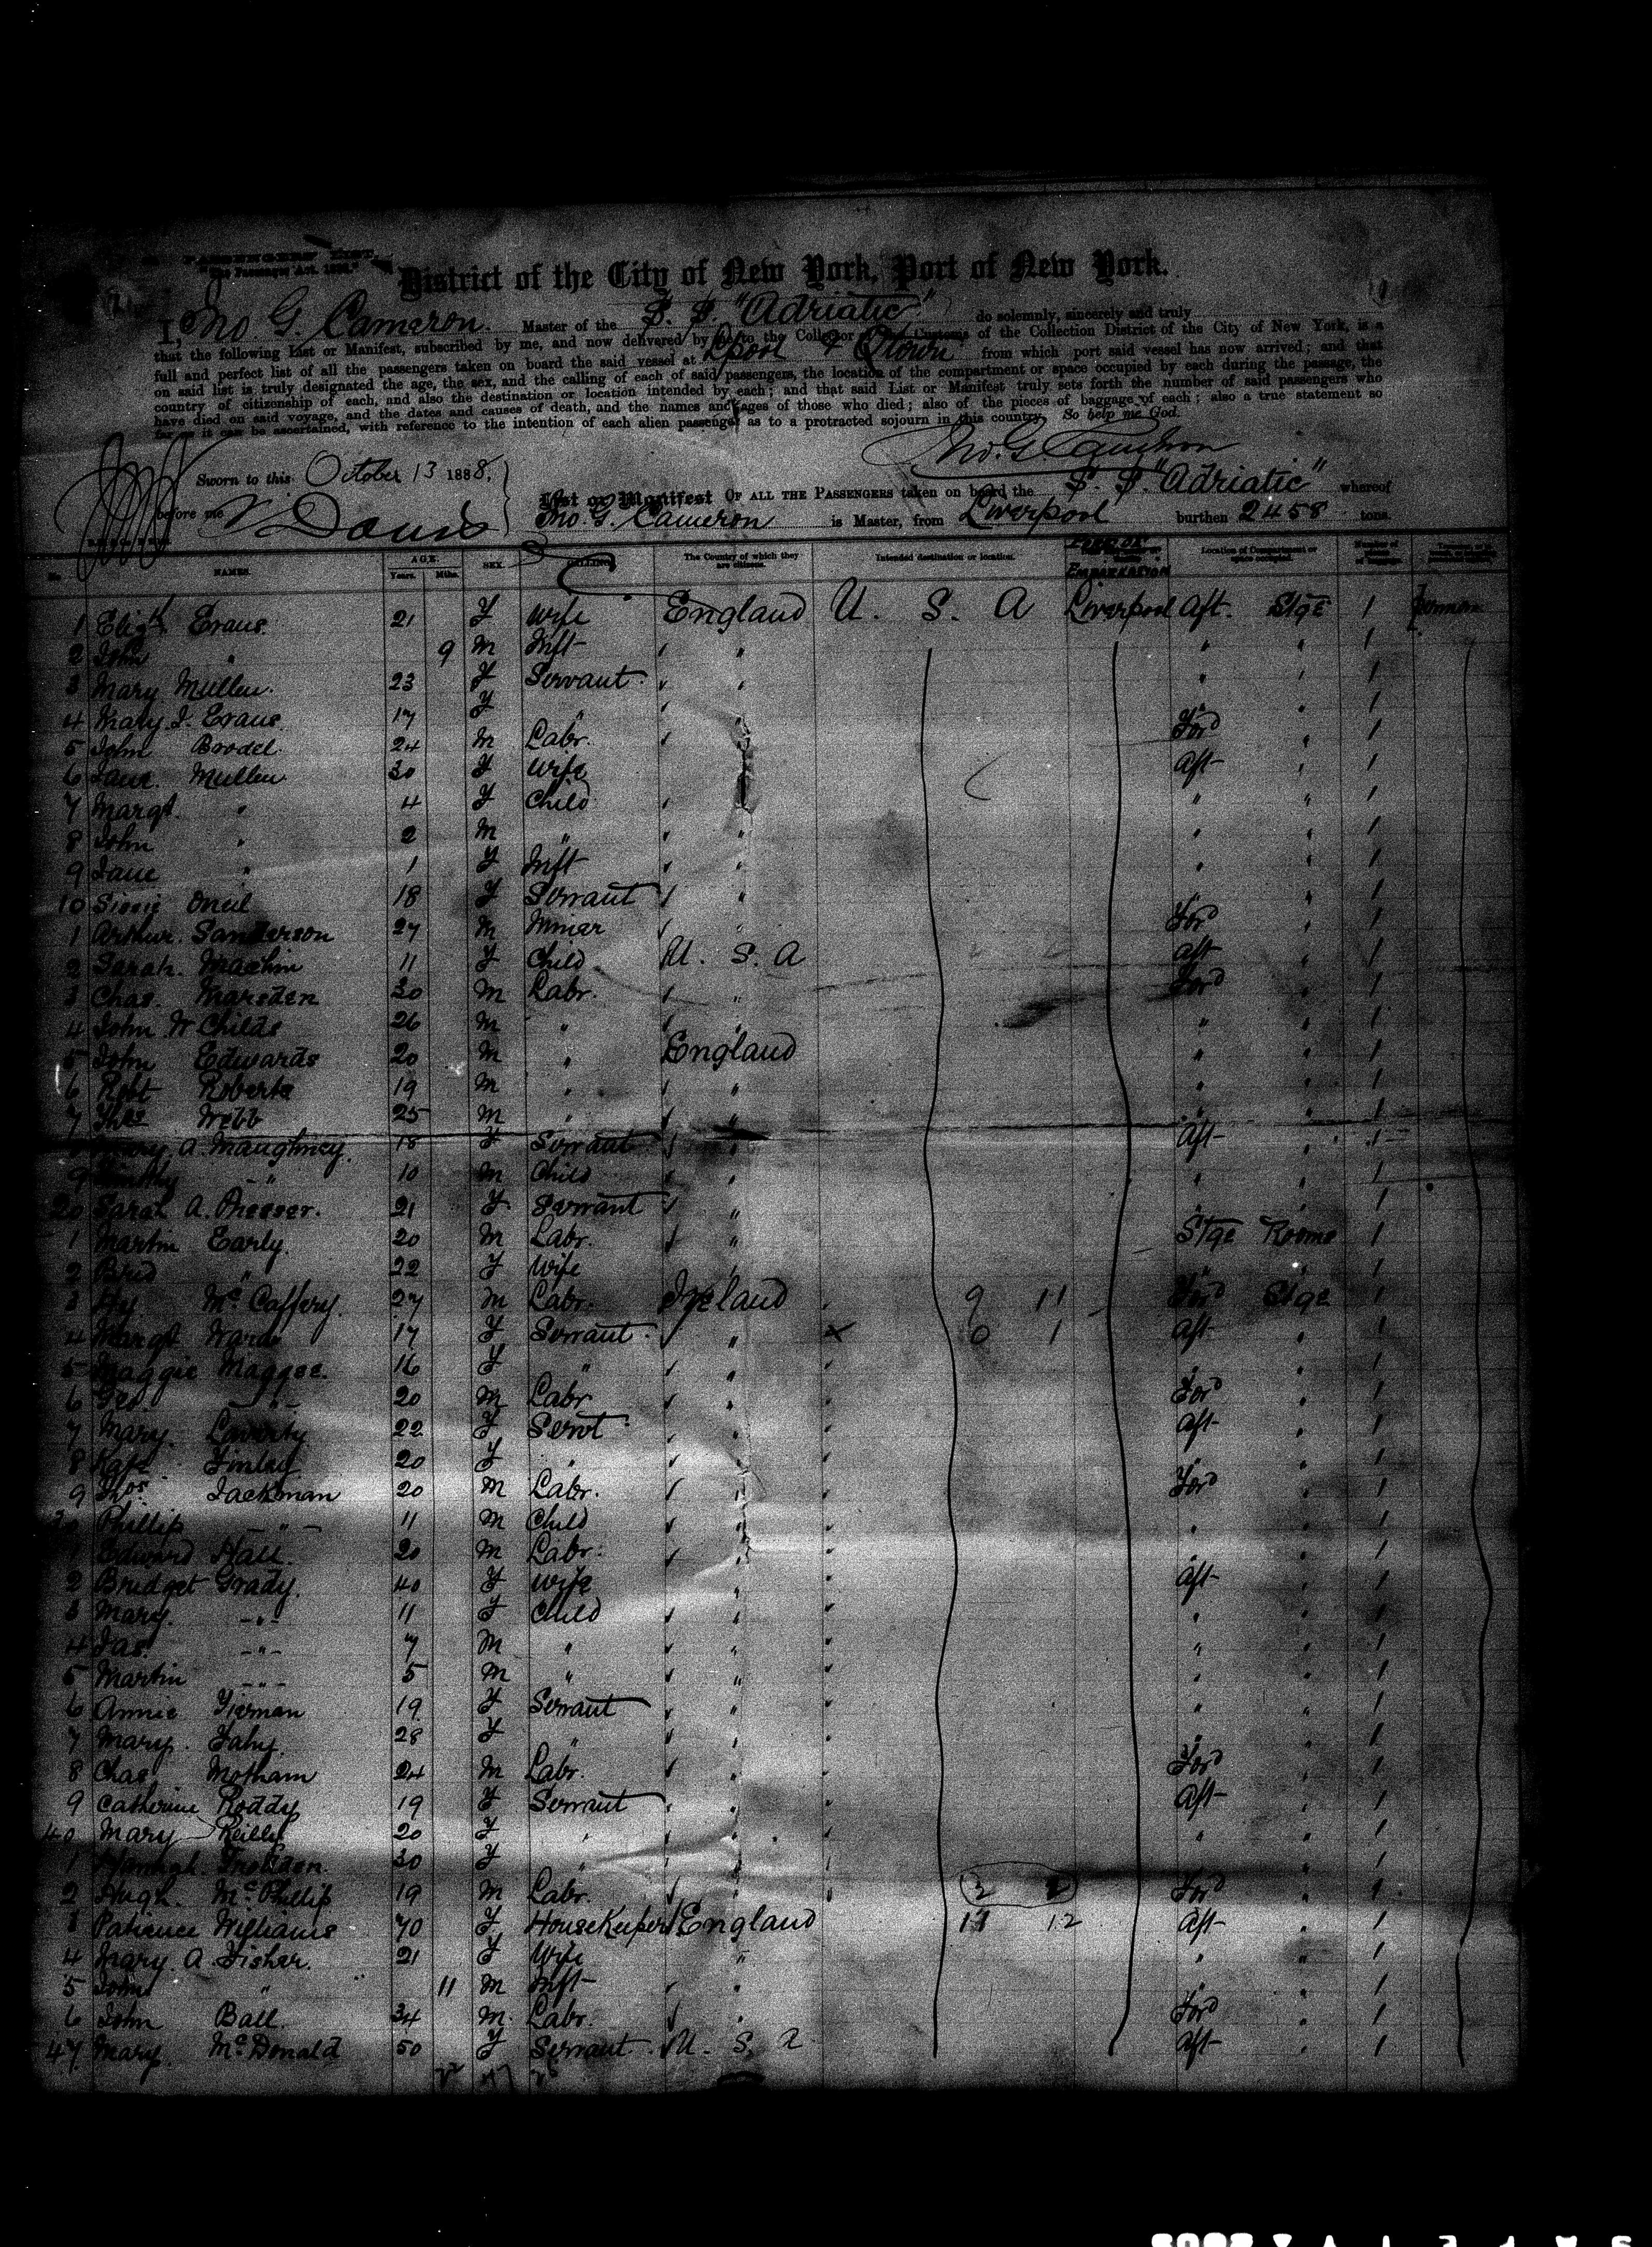 PASSENGERS' LIST.
"The Passenger Act,
District of the City of New York, Port of New York.
I, Jno G. Cameron. Master of the S. S. "Adriatic" do solemnly, sincerely and truly
that the following List or Manifest, subscribed by me, and now delivered by me to the Collector of Customs of the Collection District of the City of New York, is a
full and perfect list of all the passengers taken on board the said vessel at Lpool & Qtown from which port said vessel has now arrived; and that
on said list is truly designated the age, the sex, and the calling of each of said passengers, the location of the compartment or space occupied by each during the passage, the
country of citizenship of each, and also the destination or location intended by each; and that said List or Manifest truly sets forth the number of said passengers who
have died on said voyage, and the dates and causes of death, and the names and ages of those who died; also of the pieces of baggage of each; also a true statement so
far as it can be ascertained, with reference to the intention of each alien passenger as to a protracted sojourn in this country. So help me God.
Jno. G. Cameron
Sworn to this October 13 1888,
before me
List or Manifest OF ALL THE PASSENGERS taken on board the S. S. "Adriatic" whereof
Jno. G. Cameron is Master, from Liverpool burthen 2458 tons.
No. NAMES. AGE. Years. Mths. SEX. CALLING. The Country of which they are citizens. Intended destination or location. PORT OF EMBARKATION Location of Compartment or space occupied. Number of pieces of baggage.
1 Elizth Evans. 21 F Wife England U. S. A Liverpool Aft. Stge 1
2 John " 9 M Inft " " " 1
3 Mary Mullen. 23 F Servant " " " 1
4 Mary J. Evans 17 F " " " " 1
5 John Brodel. 24 M Labr. " Ford " 1
6 Jane Mullen 30 F Wife " Aft " 1
7 Margt. " 4 F Child " " " 1
8 John " 2 M " " " " 1
9 Jane " 1 F Inft " " " 1
10 Oneil 18 F Servant " " " 1
1 Arthur Sanderson 27 M Miner " Ford " 1
2 Sarah Machin 11 F Child U. S. A Aft " 1
3 Chas. Marsden 30 M Labr. " Ford " 1
4 John W Childs 26 M " " " " 1
5 John Edwards 20 M " England " " 1
6 Robt Roberts 19 M " " " " 1
7 Thos Webb 25 M " " " " 1
Mary A. Maughney. 18 F Servant " Aft " 1
9 " 10 M Child " " " 1
20 Sarah A. 21 F Servant " " " 1
1 Martin Early. 20 M Labr. " Stge Rooms 1
2 Brid " 22 F Wife " " " 1
3 Hy. McCaffery. 27 M Labr. Ireland 9 11 Ford Stge 1
4 Margt Ward 17 F Servant " x 0 1 Aft " 1
5 Maggie Maggee. 16 F " " " " 1
6 Geo. " 20 M Labr " Ford " 1
7 Mary Laverty 22 F Servt " Aft " 1
8 Kate Finlay 20 F " " " " 1
9 Thos Jackman 20 M Labr. " Ford " 1
30 Phillip " 11 M Child " " " 1
1 Edward Hall. 20 M Labr. " " " 1
2 Bridget Grady. 40 F Wife " Aft " 1
3 Mary. " 11 F Child " " " 1
4 Jas. " 7 M " " " " 1
5 Martin " 5 M " " " " 1
6 Annie Tierman 19 F Servant " " " 1
7 Mary. Fahy. 28 F " " " " 1
8 Chas Motham 24 M Labr. " Ford " 1
9 Catherine Roddy 19 F Servant " Aft " 1
40 Mary Reilly 20 F " " " " 1
1 Hannah 30 F " " " " 1
2 Hugh. McPhillip 19 M Labr. " 2 2 Ford " 1
3 Patience Williams 70 F HouseKeeper England 11 12 Aft " 1
4 Mary. A Fisher. 21 F Wife " " " 1
5 John " 11 M Inft " " " 1
6 John Ball. 34 M. Labr. " Ford " 1
47 Mary. McDonald 50 F Servant. U. S. A Aft " 1